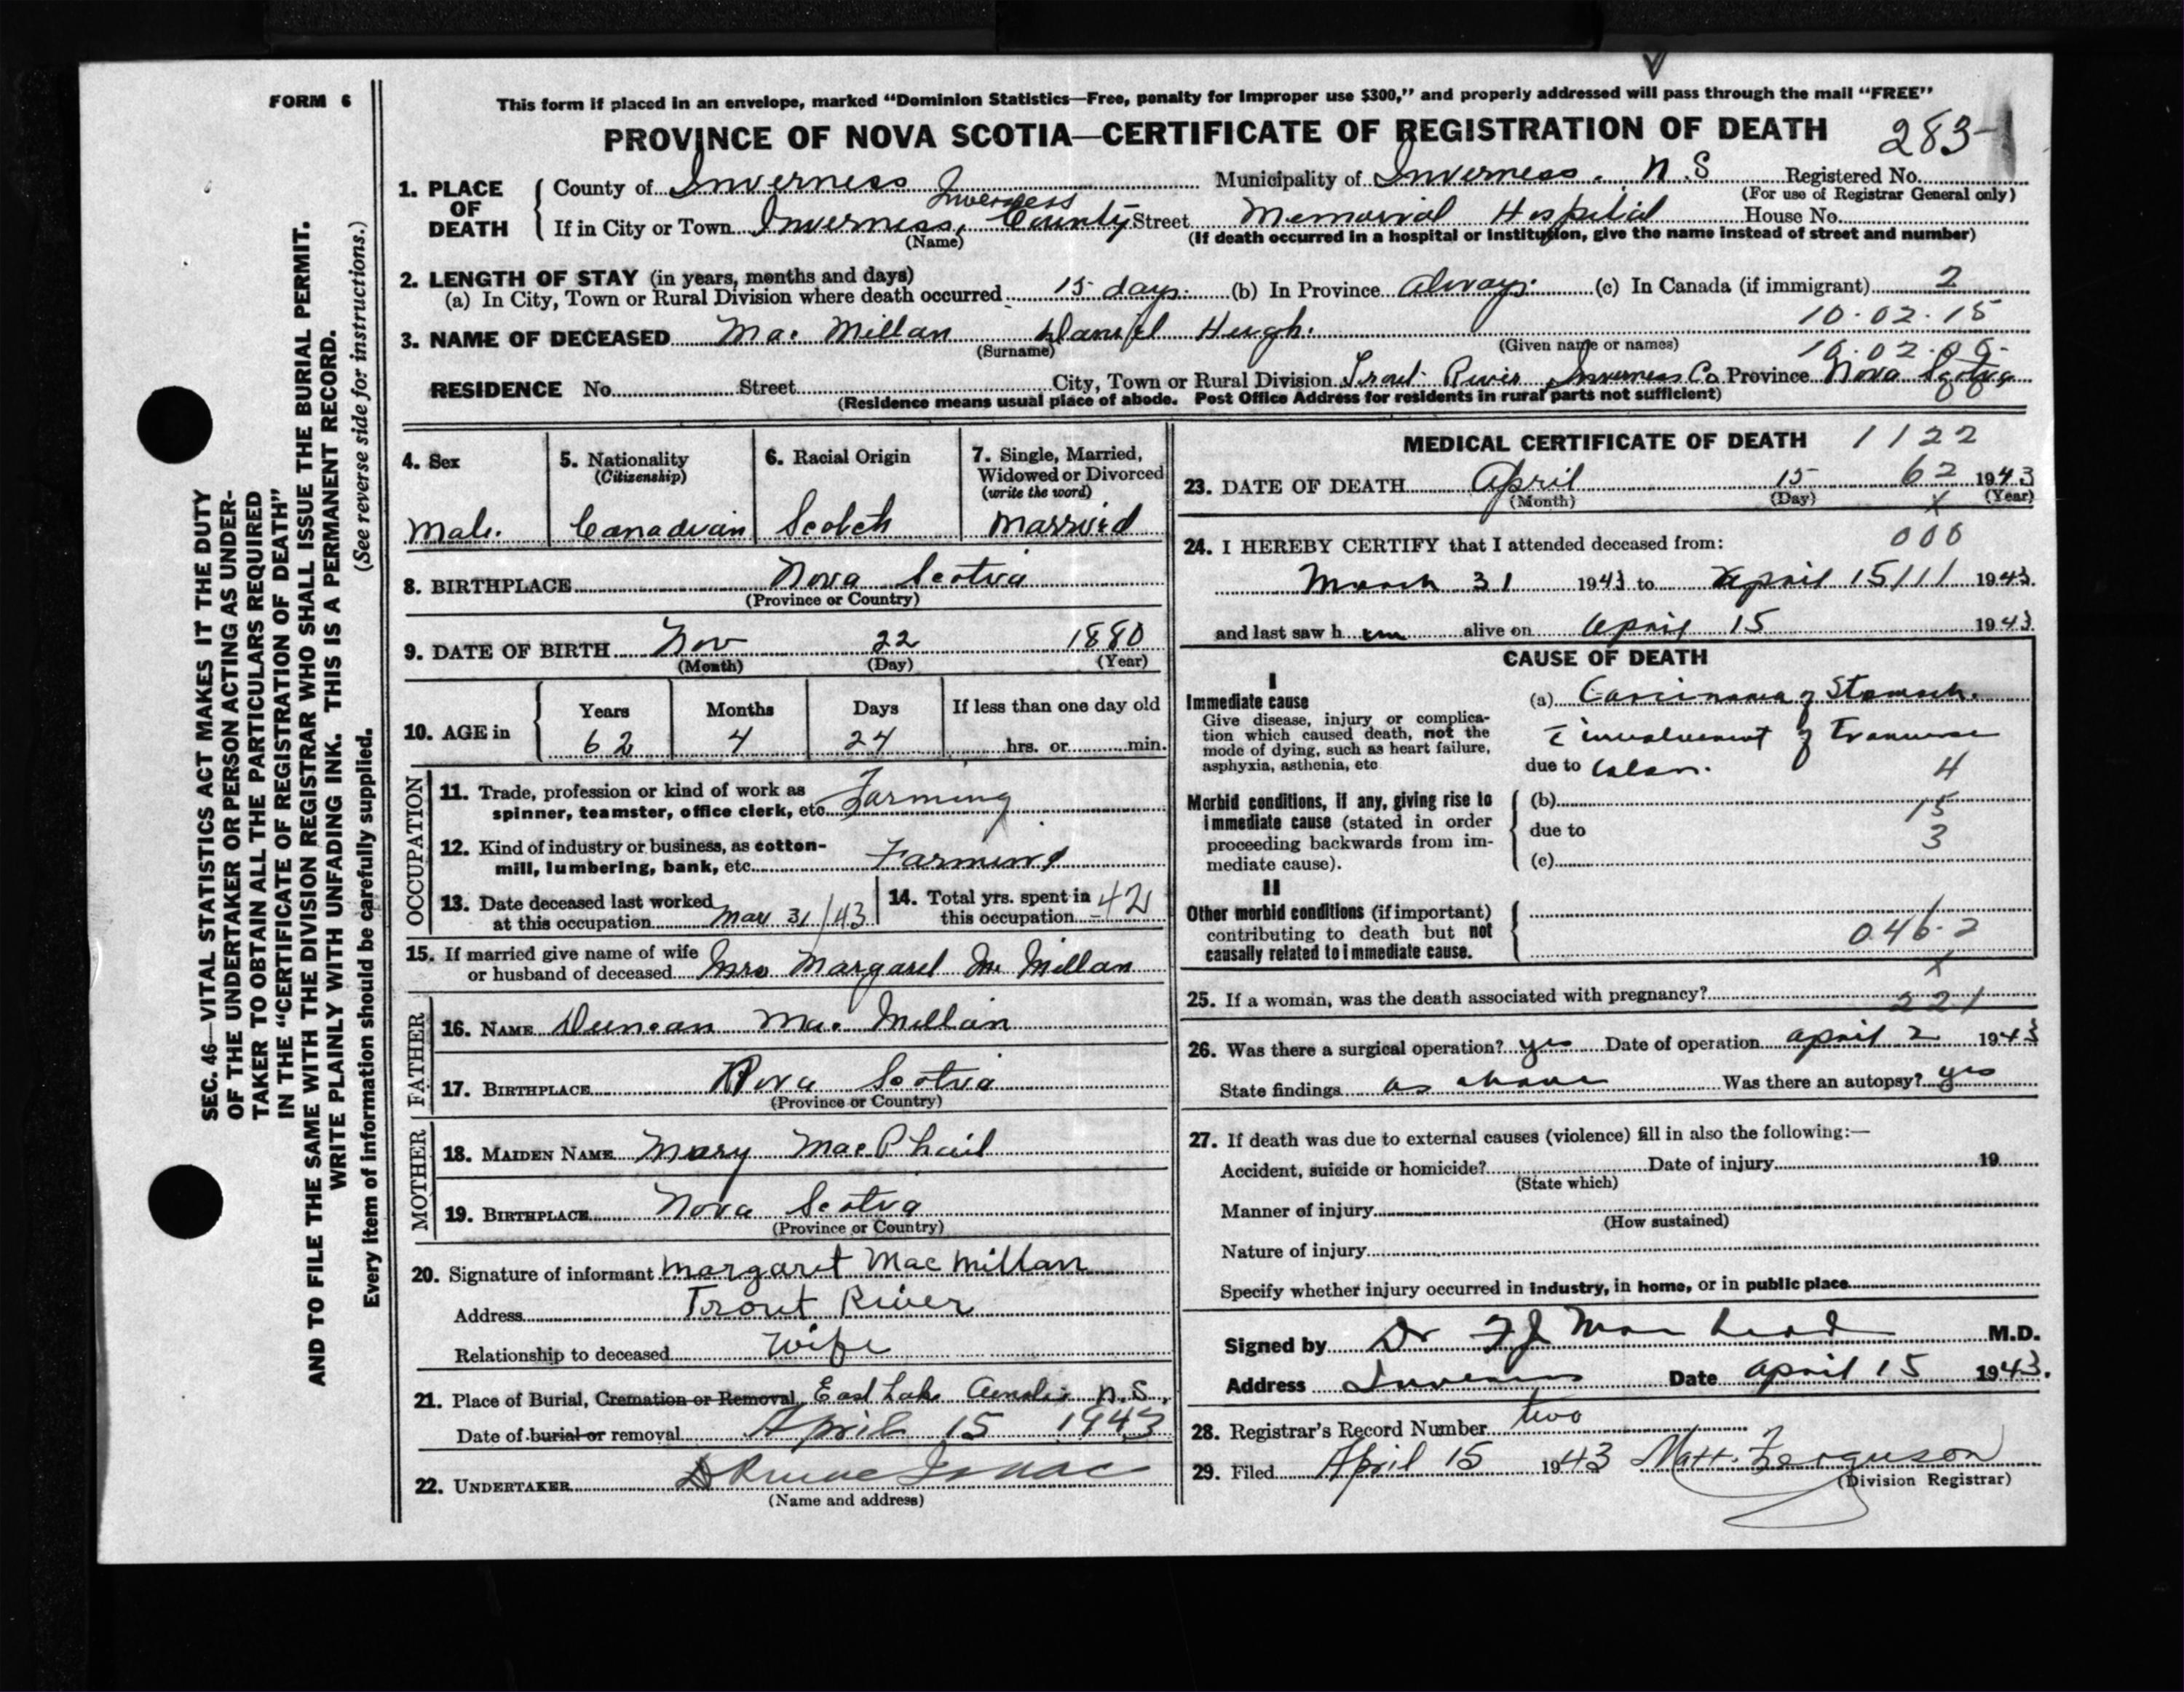 FORM 6
This form if placed in an envelope, marked “Dominion Statistics—Free, penalty for improper use $300,” and properly addressed will pass through the mail “FREE”
PROVINCE OF NOVA SCOTIA—CERTIFICATE OF REGISTRATION OF DEATH 283-1
1. PLACE OF DEATH
County of Inverness Municipality of Inverness. N.S Registered No.
(For use of Registrar General only)
Inverness
If in City or Town Inverness, County Street Memorial Hospital House No.
(Name) (If death occurred in a hospital or institution, give the name instead of street and number)
2. LENGTH OF STAY (in years, months and days)
(a) In City, Town or Rural Division where death occurred 15 days. (b) In Province Always. (c) In Canada (if immigrant) 2
10.02.15
3. NAME OF DECEASED Mac Millan Daniel Hugh.
(Surname) (Given name or names)
10.02.06
RESIDENCE No. Street City, Town or Rural Division Trout River Inverness Co Province Nova Scotia
(Residence means usual place of abode. Post Office Address for residents in rural parts not sufficient)
4. Sex
Male.
5. Nationality
(Citizenship)
Canadian
6. Racial Origin
Scotch
7. Single, Married,
Widowed or Divorced
(write the word)
Married
8. BIRTHPLACE Nova Scotia
(Province or Country)
9. DATE OF BIRTH Nov 22 1880
(Month) (Day) (Year)
10. AGE in
Years Months Days If less than one day old
62 4 24 hrs. or min.
OCCUPATION
11. Trade, profession or kind of work as
spinner, teamster, office clerk, etc. Farming
12. Kind of industry or business, as cotton-
mill, lumbering, bank, etc. Farming
13. Date deceased last worked
at this occupation Mar 31/43
14. Total yrs. spent in
this occupation 42
15. If married give name of wife
or husband of deceased Mrs Margaret Mc Millan
FATHER
16. NAME Duncan Mac Millan
17. BIRTHPLACE Nova Scotia
(Province or Country)
MOTHER
18. MAIDEN NAME Mary MacPhail
19. BIRTHPLACE Nova Scotia
(Province or Country)
20. Signature of informant Margaret MacMillan
Address Trout River
Relationship to deceased Wife
21. Place of Burial, Cremation or Removal East Lake Ainslie N.S.
Date of burial or removal April 15 1943
22. UNDERTAKER
(Name and address)
MEDICAL CERTIFICATE OF DEATH 1122
62
23. DATE OF DEATH April 15 1943
(Month) (Day) (Year)
x
24. I HEREBY CERTIFY that I attended deceased from: 000
March 31 1943 to April 15/11 1943.
and last saw h im alive on April 15 1943.
CAUSE OF DEATH
I
Immediate cause
Give disease, injury or complica-
tion which caused death, not the
mode of dying, such as heart failure,
asphyxia, asthenia, etc.
(a) Carcinoma of Stomach.
c̄ involvement of Transverse
due to Colon. 4
Morbid conditions, if any, giving rise to
immediate cause (stated in order
proceeding backwards from im-
mediate cause).
(b)
15
due to
3
(c)
II
Other morbid conditions (if important)
contributing to death but not
causally related to immediate cause.
046.2
x
25. If a woman, was the death associated with pregnancy?
221
26. Was there a surgical operation? yes Date of operation April 2 1943
State findings as above Was there an autopsy? yes
27. If death was due to external causes (violence) fill in also the following:—
Accident, suicide or homicide? Date of injury 19
(State which)
Manner of injury
(How sustained)
Nature of injury
Specify whether injury occurred in industry, in home, or in public place
Signed by Dr FJ Mac Leod M.D.
Address Inverness Date April 15 1943.
28. Registrar’s Record Number two
29. Filed April 15 1943 Matt. Ferguson
(Division Registrar)
SEC. 46—VITAL STATISTICS ACT MAKES IT THE DUTY
OF THE UNDERTAKER OR PERSON ACTING AS UNDER-
TAKER TO OBTAIN ALL THE PARTICULARS REQUIRED
IN THE “CERTIFICATE OF REGISTRATION OF DEATH”
AND TO FILE THE SAME WITH THE DIVISION REGISTRAR WHO SHALL ISSUE THE BURIAL PERMIT.
WRITE PLAINLY WITH UNFADING INK. THIS IS A PERMANENT RECORD.
(See reverse side for instructions.)
Every item of information should be carefully supplied.